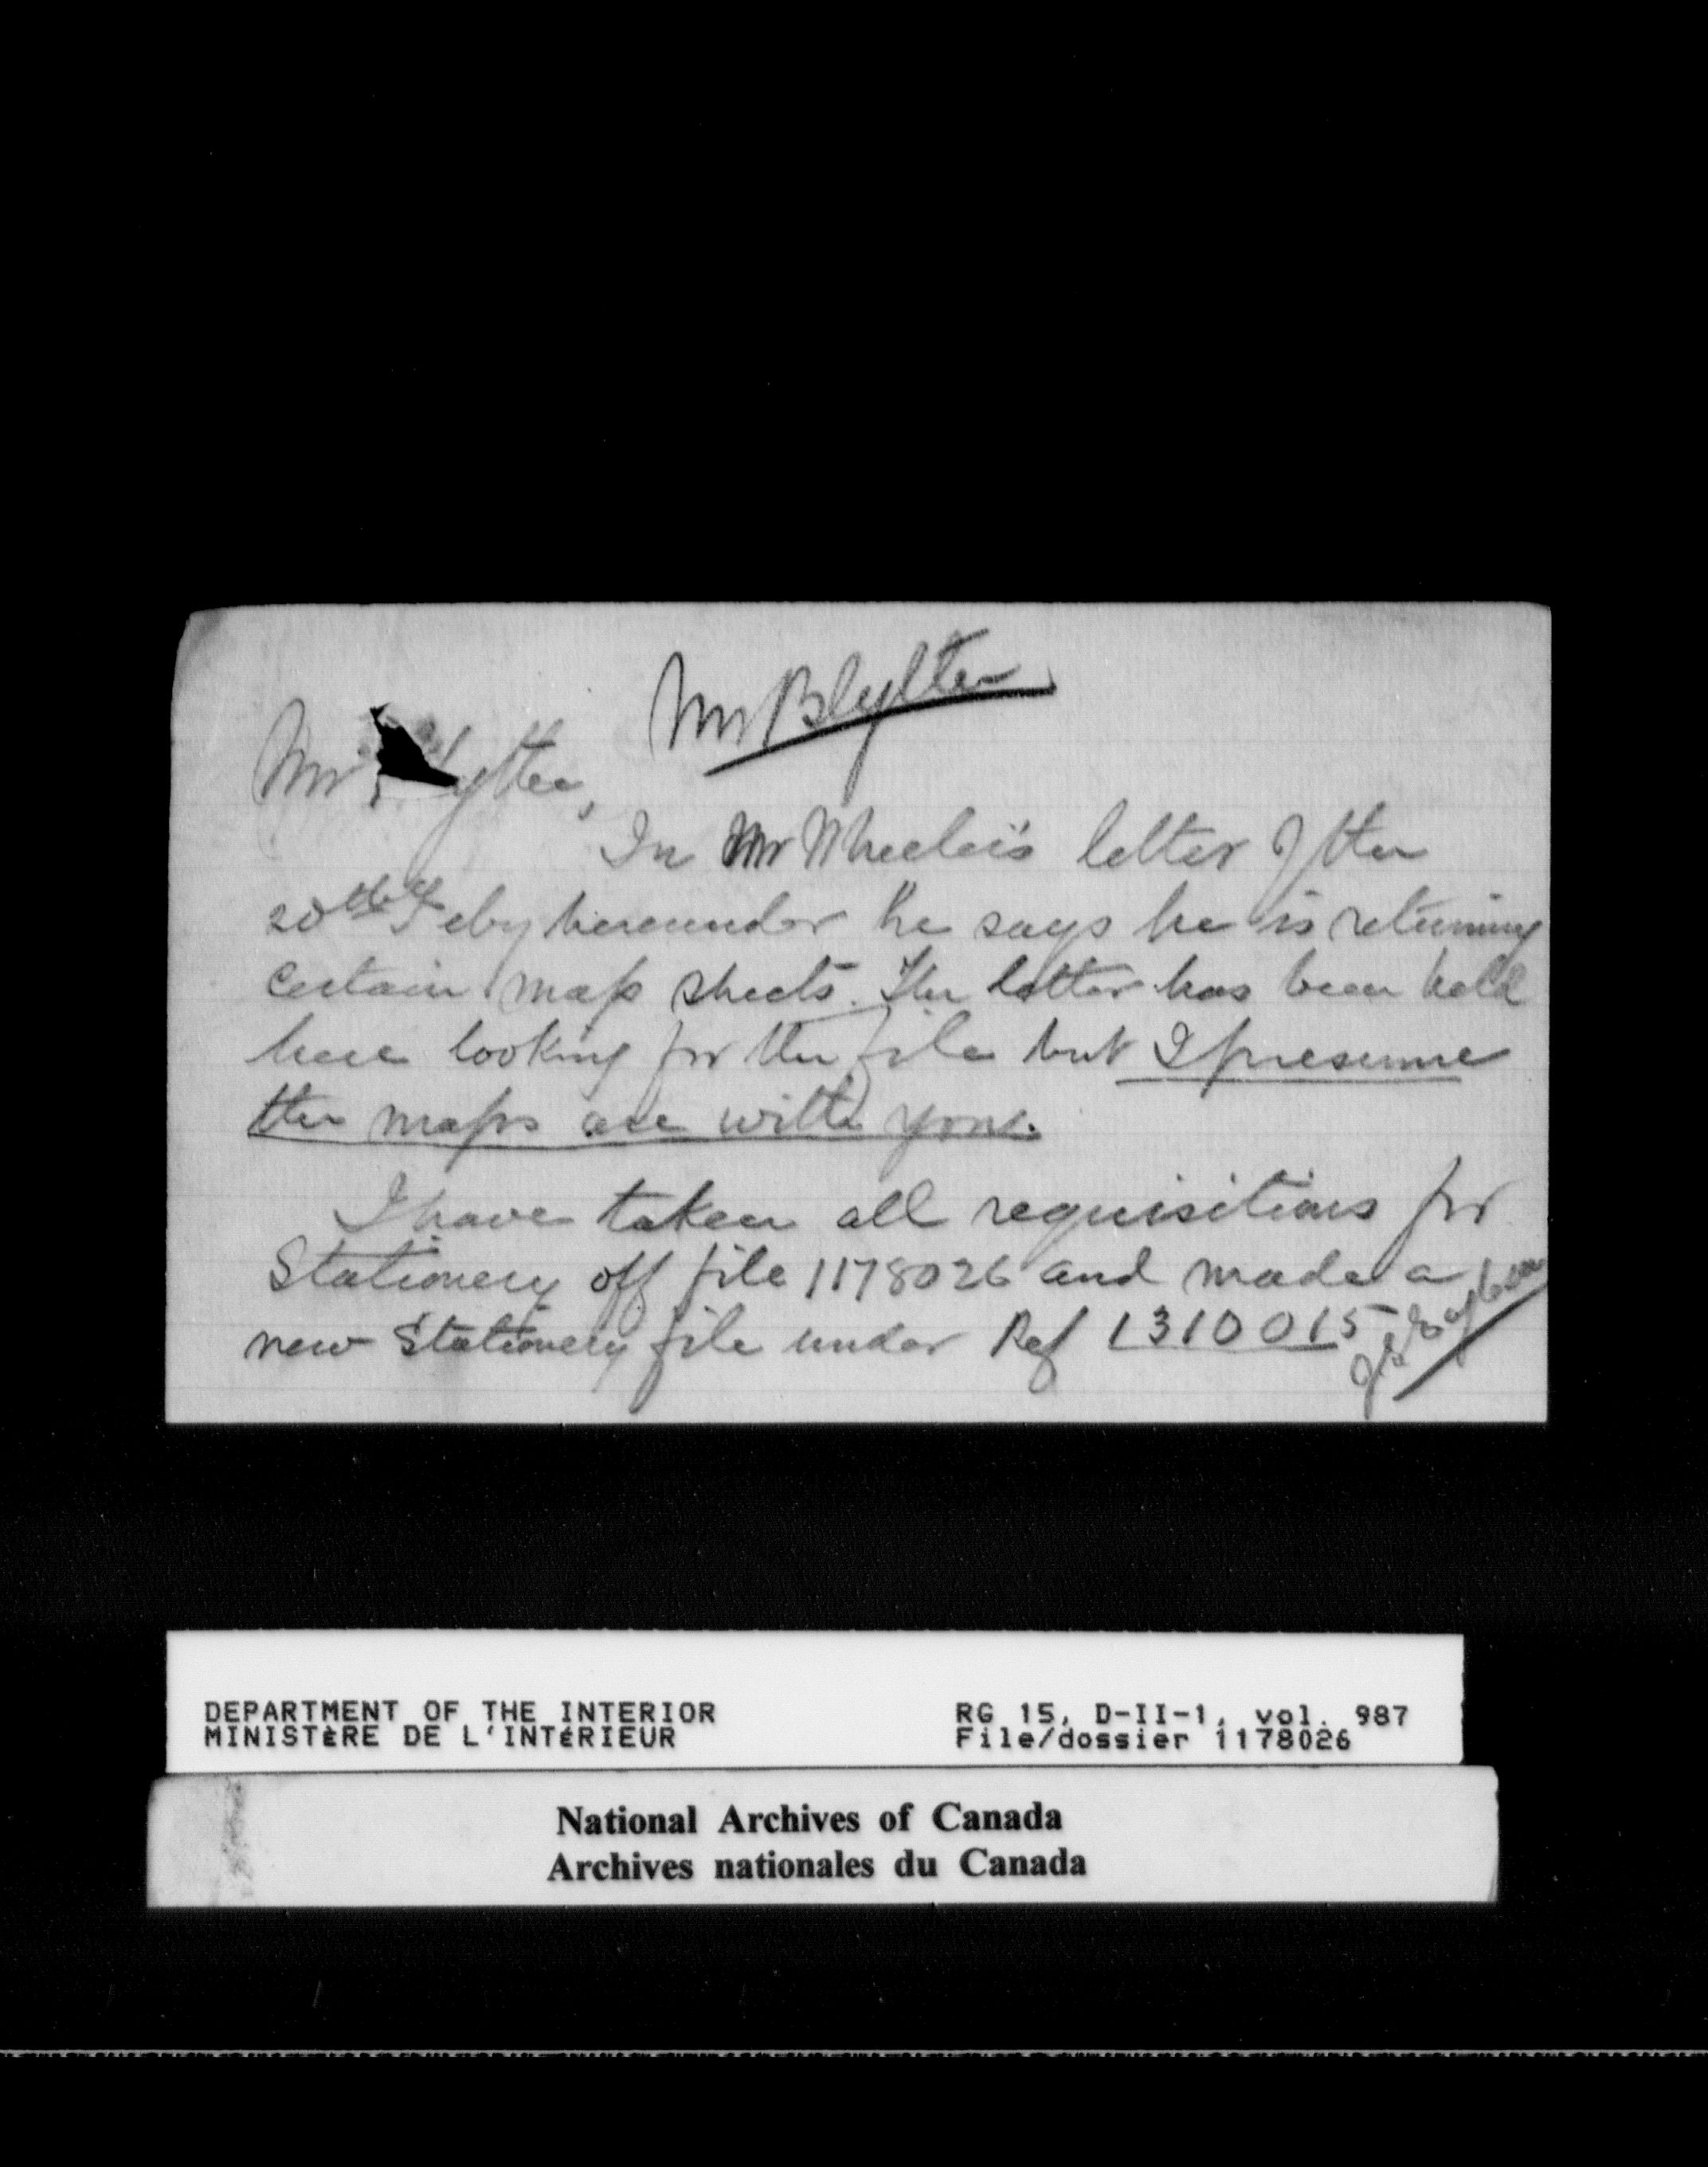 Mr Blyth
Mr
In Mr Wheeler's letter of the
20th Feby hereunder he says he is returning
certain map sheets. The letter has been held
here looking for the file but I presume
the maps are with you.
I have taken all requisitions for
Stationery off file 1178026 and made a
new Stationery file under Ref 1310015
DEPARTMENT OF THE INTERIOR
MINISTÈRE DE L'INTÉRIEUR
RG 15, D-II-1, vol. 987
File/dossier 1178026
National Archives of Canada
Archives nationales du Canada